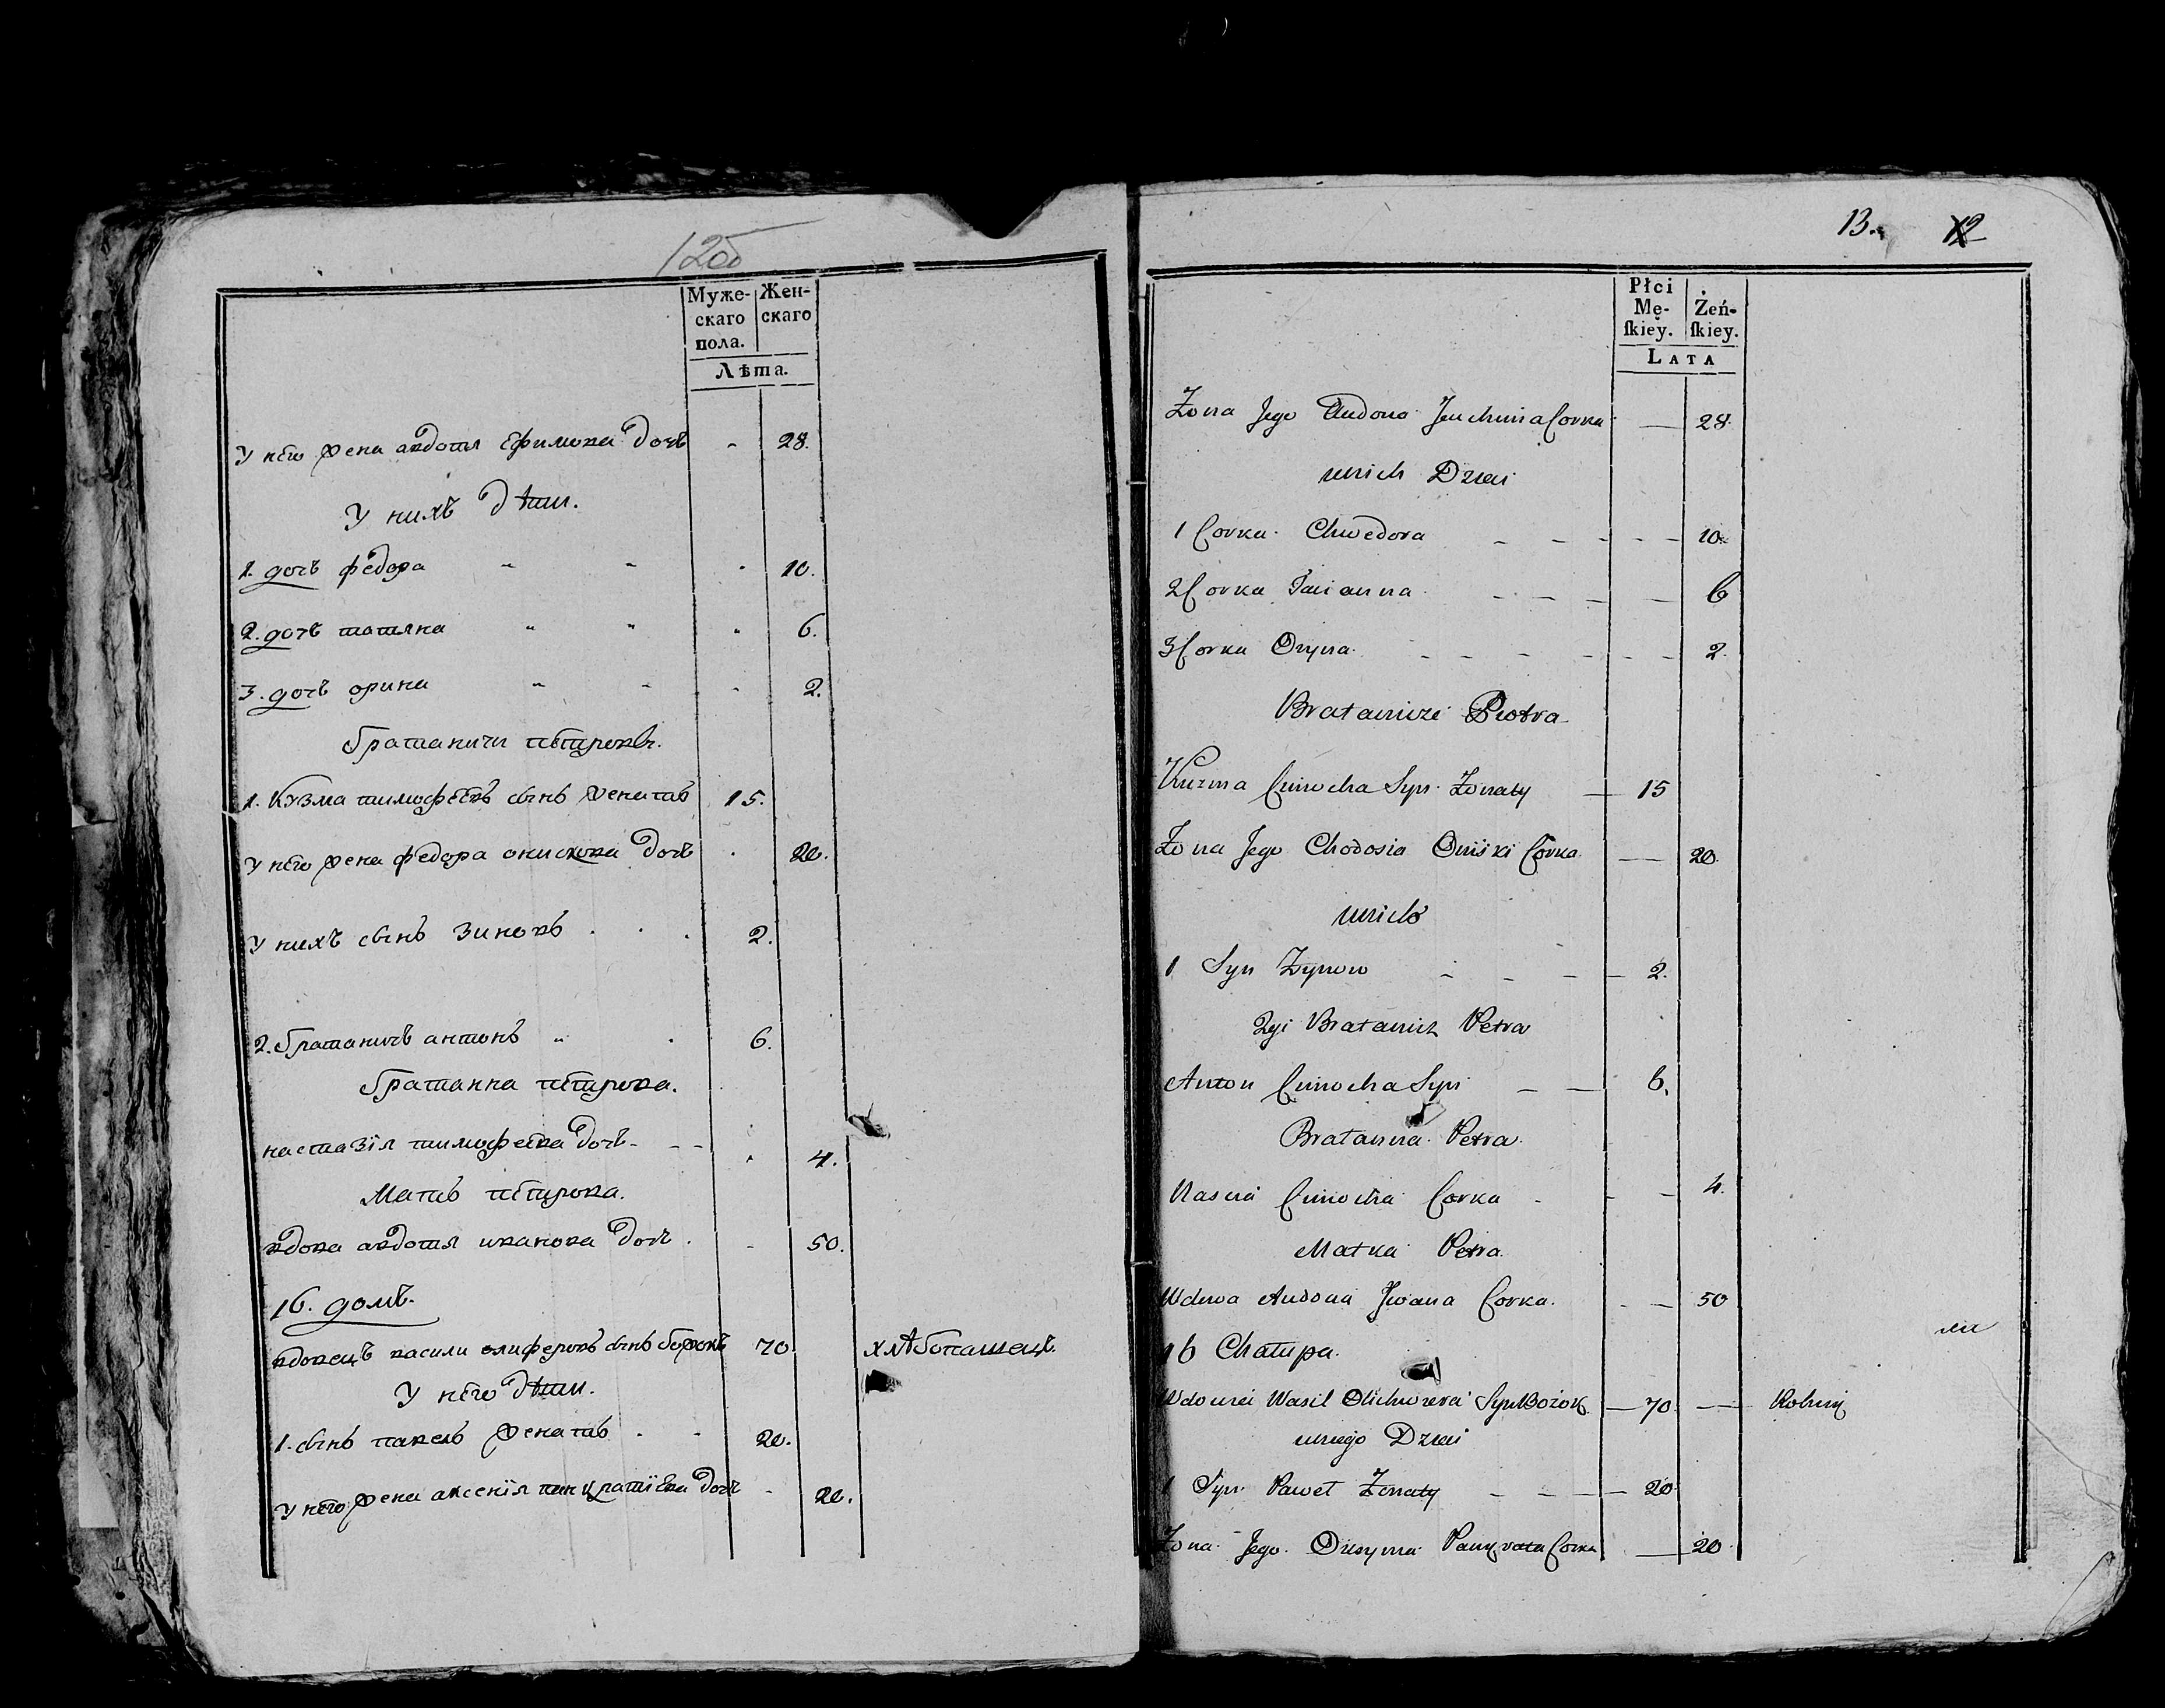 12об
Муже-
скаго
пола.
Жен-
скаго
Лѣта.
У него жена авдотя ефимова дочъ - 28.
У нихъ дѣти.
1. дочъ федора 10.
2. дочъ татяна 6.
3. дочъ орина 2.
братаничи петровы.
1. Кузма тимофеевъ сынъ женатъ 15.
У него жена федора онискова дочъ 20.
У нихъ сынъ зиновъ 2.
2. братаничъ антонъ 6.
братанна петрова.
настазія тимофеева дочъ - - - 4.
Мать петрова.
вдова авдотя иванова дочъ 50.
16. домъ.
вдовецъ васили олиферовъ сынъ божокъ 70. хлѣбопашецъ.
У него дѣти.
1. сынъ павелъ женатъ 20.
У него жена аксенія панкратіева дочъ - 20.
13. 12
Płci
Mę-
ſkiey.
Żeń-
ſkiey.
LATA
Zona Jego Audona Juchima Corka — 28.
unich Dzieci
1 Corka Chwedora - - - - - 10.
2 Corka Tacianna - - - - - 6
3 Corka Oryna - - - - - - - 2.
Bratanicze Piotra
Kuzma Cimocha Syn Zonaty — 15
Zona Jego Chodosia Oniski Corka — 20.
unich
1 Syn Zynow - - - - 2.
2gi Bratanicz Petra
Anton Cimocha Syn — — 6.
Bratanna Petra
Nascia Cimocha Corka - - - 4.
Matka Petra
Wdowa Audocia Jwana Corka. - - 50
16 Chałupa.
Wdowiec Wasil Olichwiera Syn Bożok — 70. — Rolniy
uniego Dzieci
1 Syn Paweł Zonaty - - - - 20
Zona Jego Oxsynia Pankrata Corka — 20